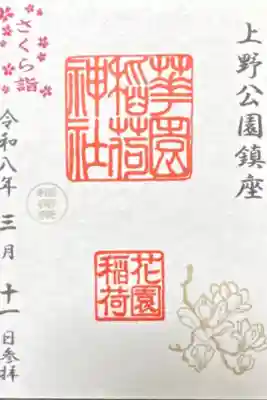 上野公園鎮座
華園
稲荷
神社
花園
稲荷
さくら詣
令和八年三月十一日参拝